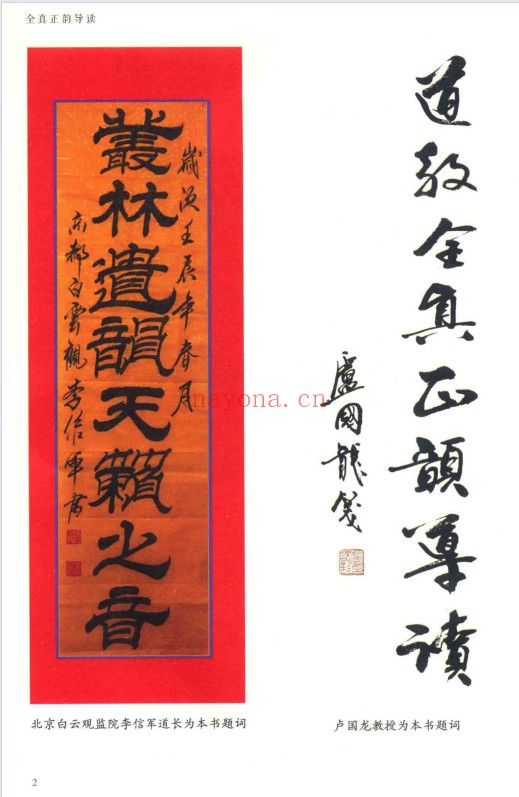 全真正韵导读
歲次壬辰年春月
叢林遺韻天籟之音
京都白雲觀李信軍書
道教全真正韻導讀
盧國龍箋
nayona.cn
北京白云观监院李信军道长为本书题词
卢国龙教授为本书题词
2